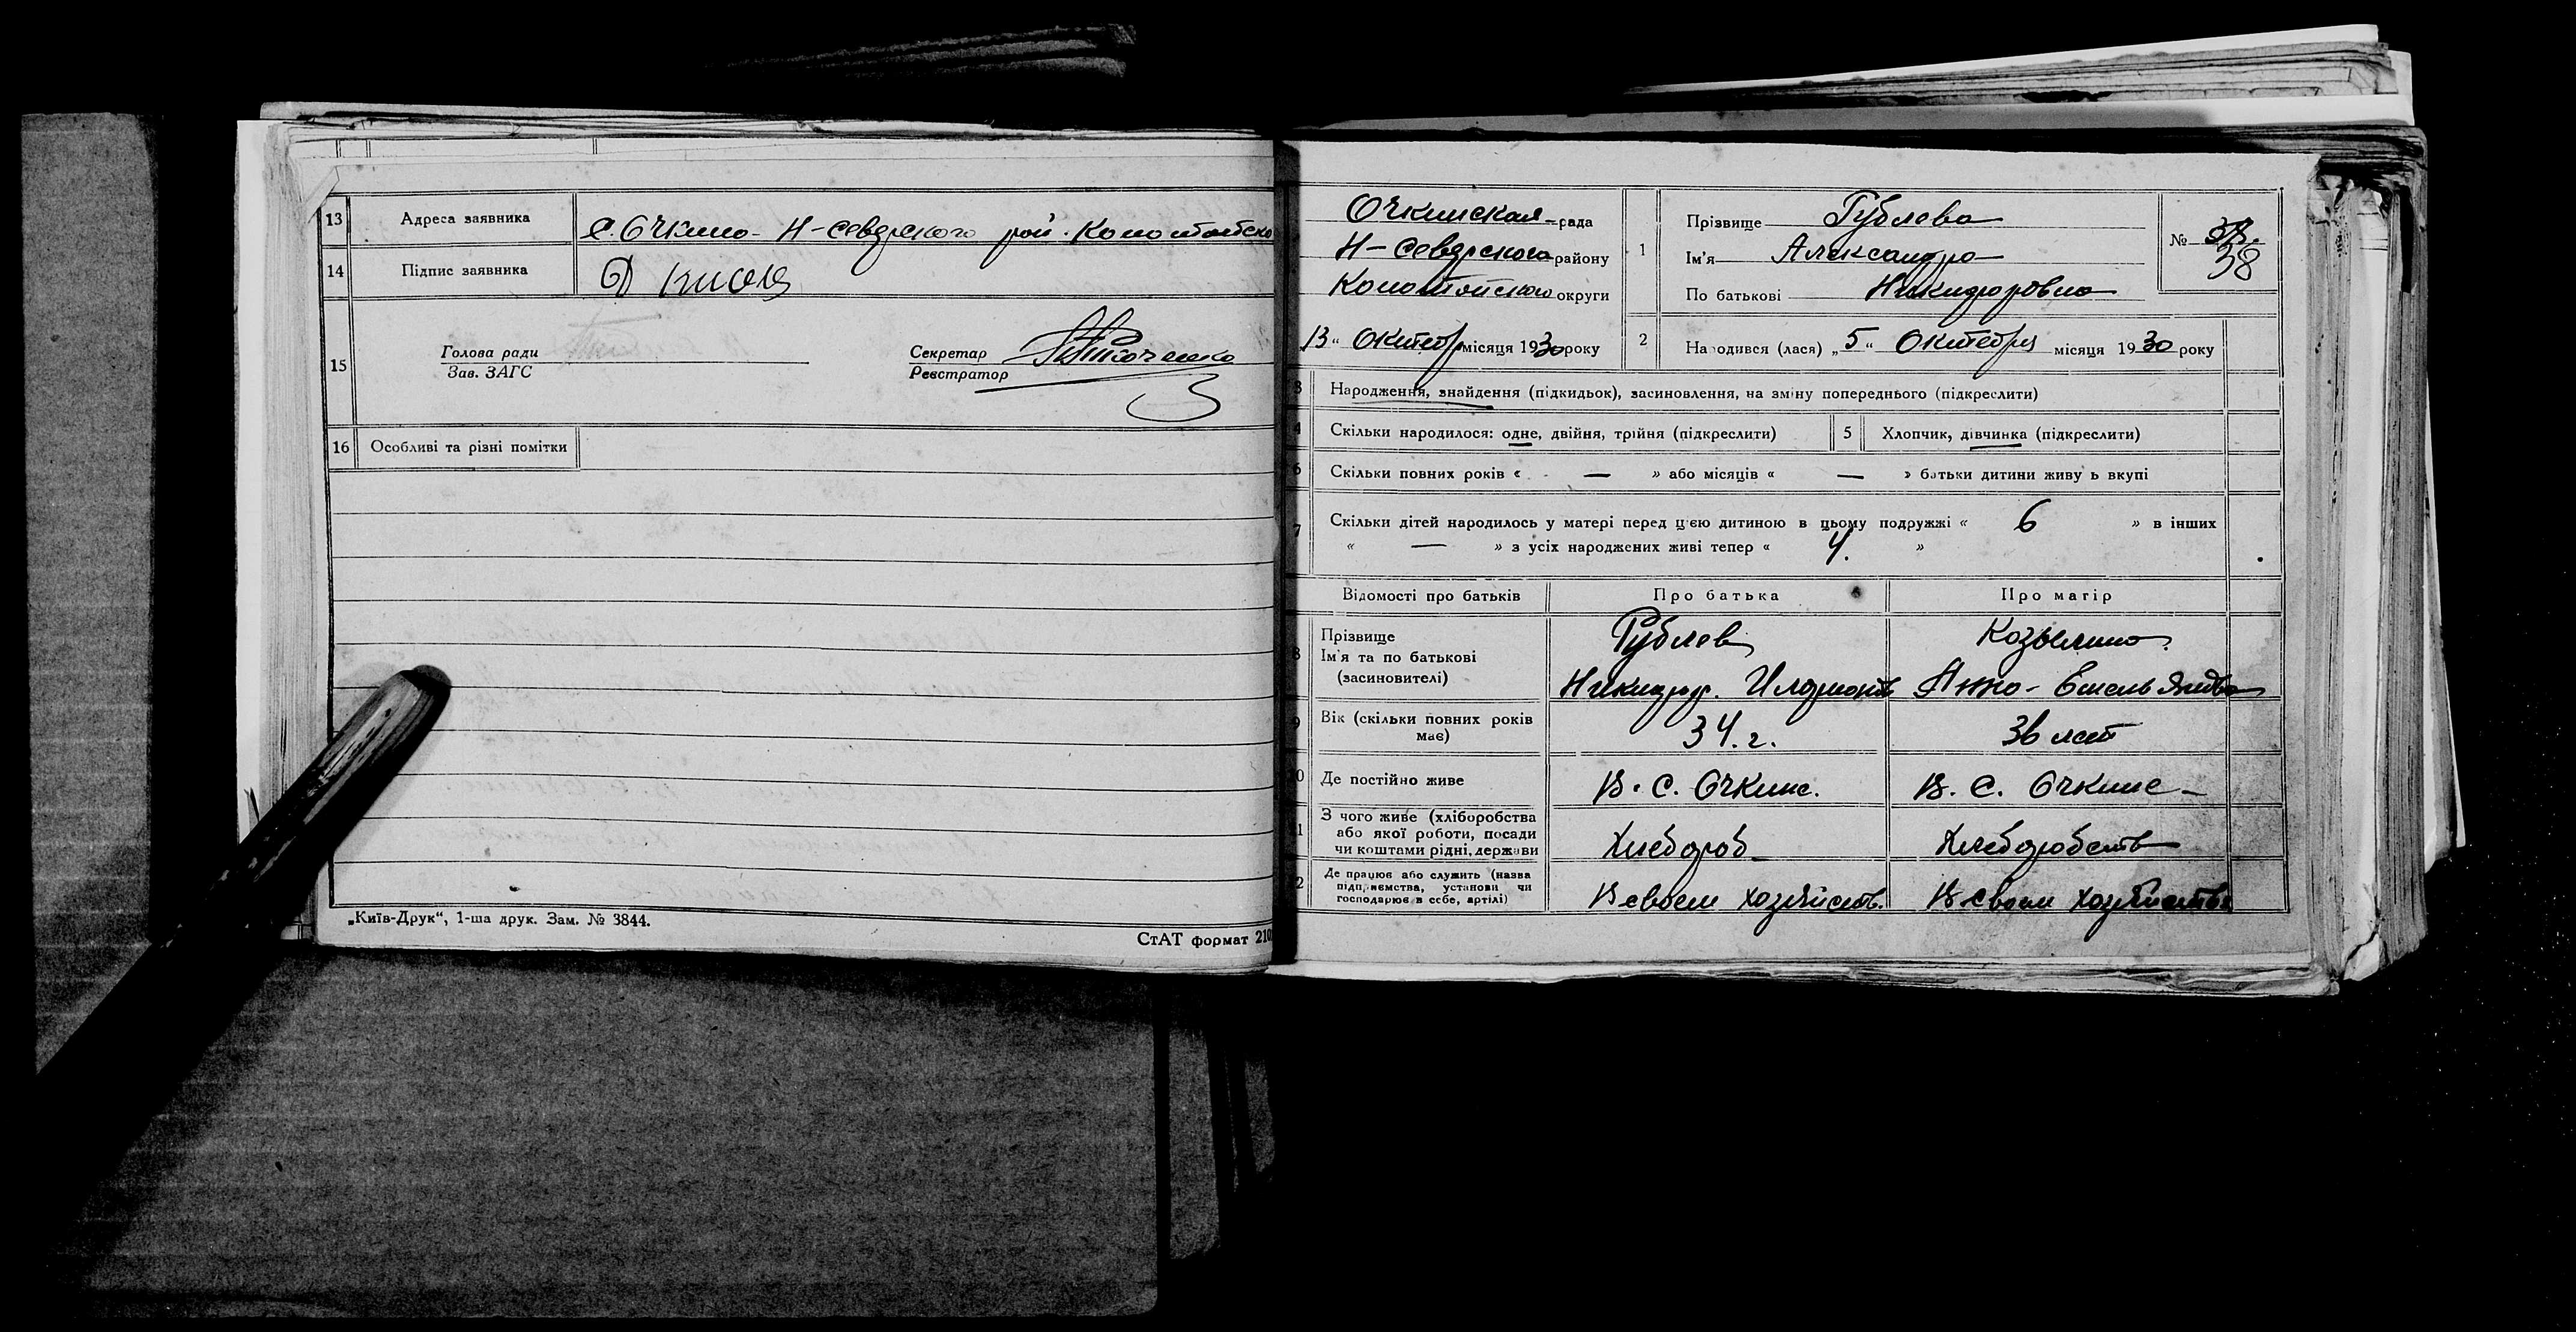 13 Адреса заявника с. Очкино - Н-Северского рай. Конотопско
14 Підпис заявника
15 Голова ради
Зав. ЗАГС
Секретар
Реєстратор
16 Особливі та різні помітки
„Київ-Друк“, 1-ша друк. Зам. № 3844.
СтАТ формат 210
Очкинская рада
Н-Северского району
Конотопского округи
13 “ Октебр місяця 1930 року
1 Прізвище Рублева
Ім'я Александра
По батькові Никифоровна
№ 38
2 Народився (лася) „ 5 “ Октебря місяця 1930 року
3 Народження, знайдення (підкидьок), засиновлення, на зміну попереднього (підкреслити)
4 Скільки народилося: одне, двійня, трійня (підкреслити) 5 Хлопчик, дівчинка (підкреслити)
6 Скільки повних років « — » або місяців « — » батьки дитини живуть вкупі
7 Скільки дітей народилось у матері перед цією дитиною в цьому подружжі « 6 » в інших
« — » з усіх народжених живі тепер « 4. »
Відомості про батьків Про батька Про матір
8 Прізвище Рублев
Ім'я та по батькові
(засиновителі) Никифор. Анна - Емельяновна
9 Вік (скільки повних років має) 34. г. 36 лет
10 Де постійно живе В. С. Очкине. В. С. Очкине
11 З чого живе (хліборобства
або якої роботи, посади
чи коштами рідні, держави Хлебороб Хлеборобств
12 Де працює або служить (назва
підприємства, установи чи
господарює в себе, артілі) В своем хозяйств. В своем хозяйстве